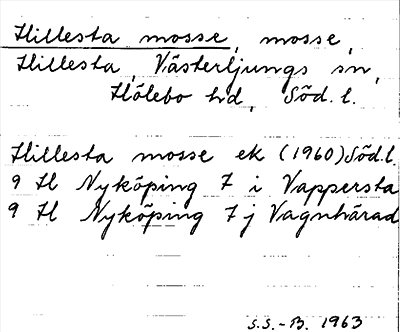 Hillesta mosse, mosse,
Hillesta, Västerljungs sn,
Hölebo hd, Söd. l.
Hillesta mosse ek (1960) Söd. l.
9 H Nyköping 7 i Vappersta
9 H Nyköping 7 j Vagnhärad
S.S.-B. 1963